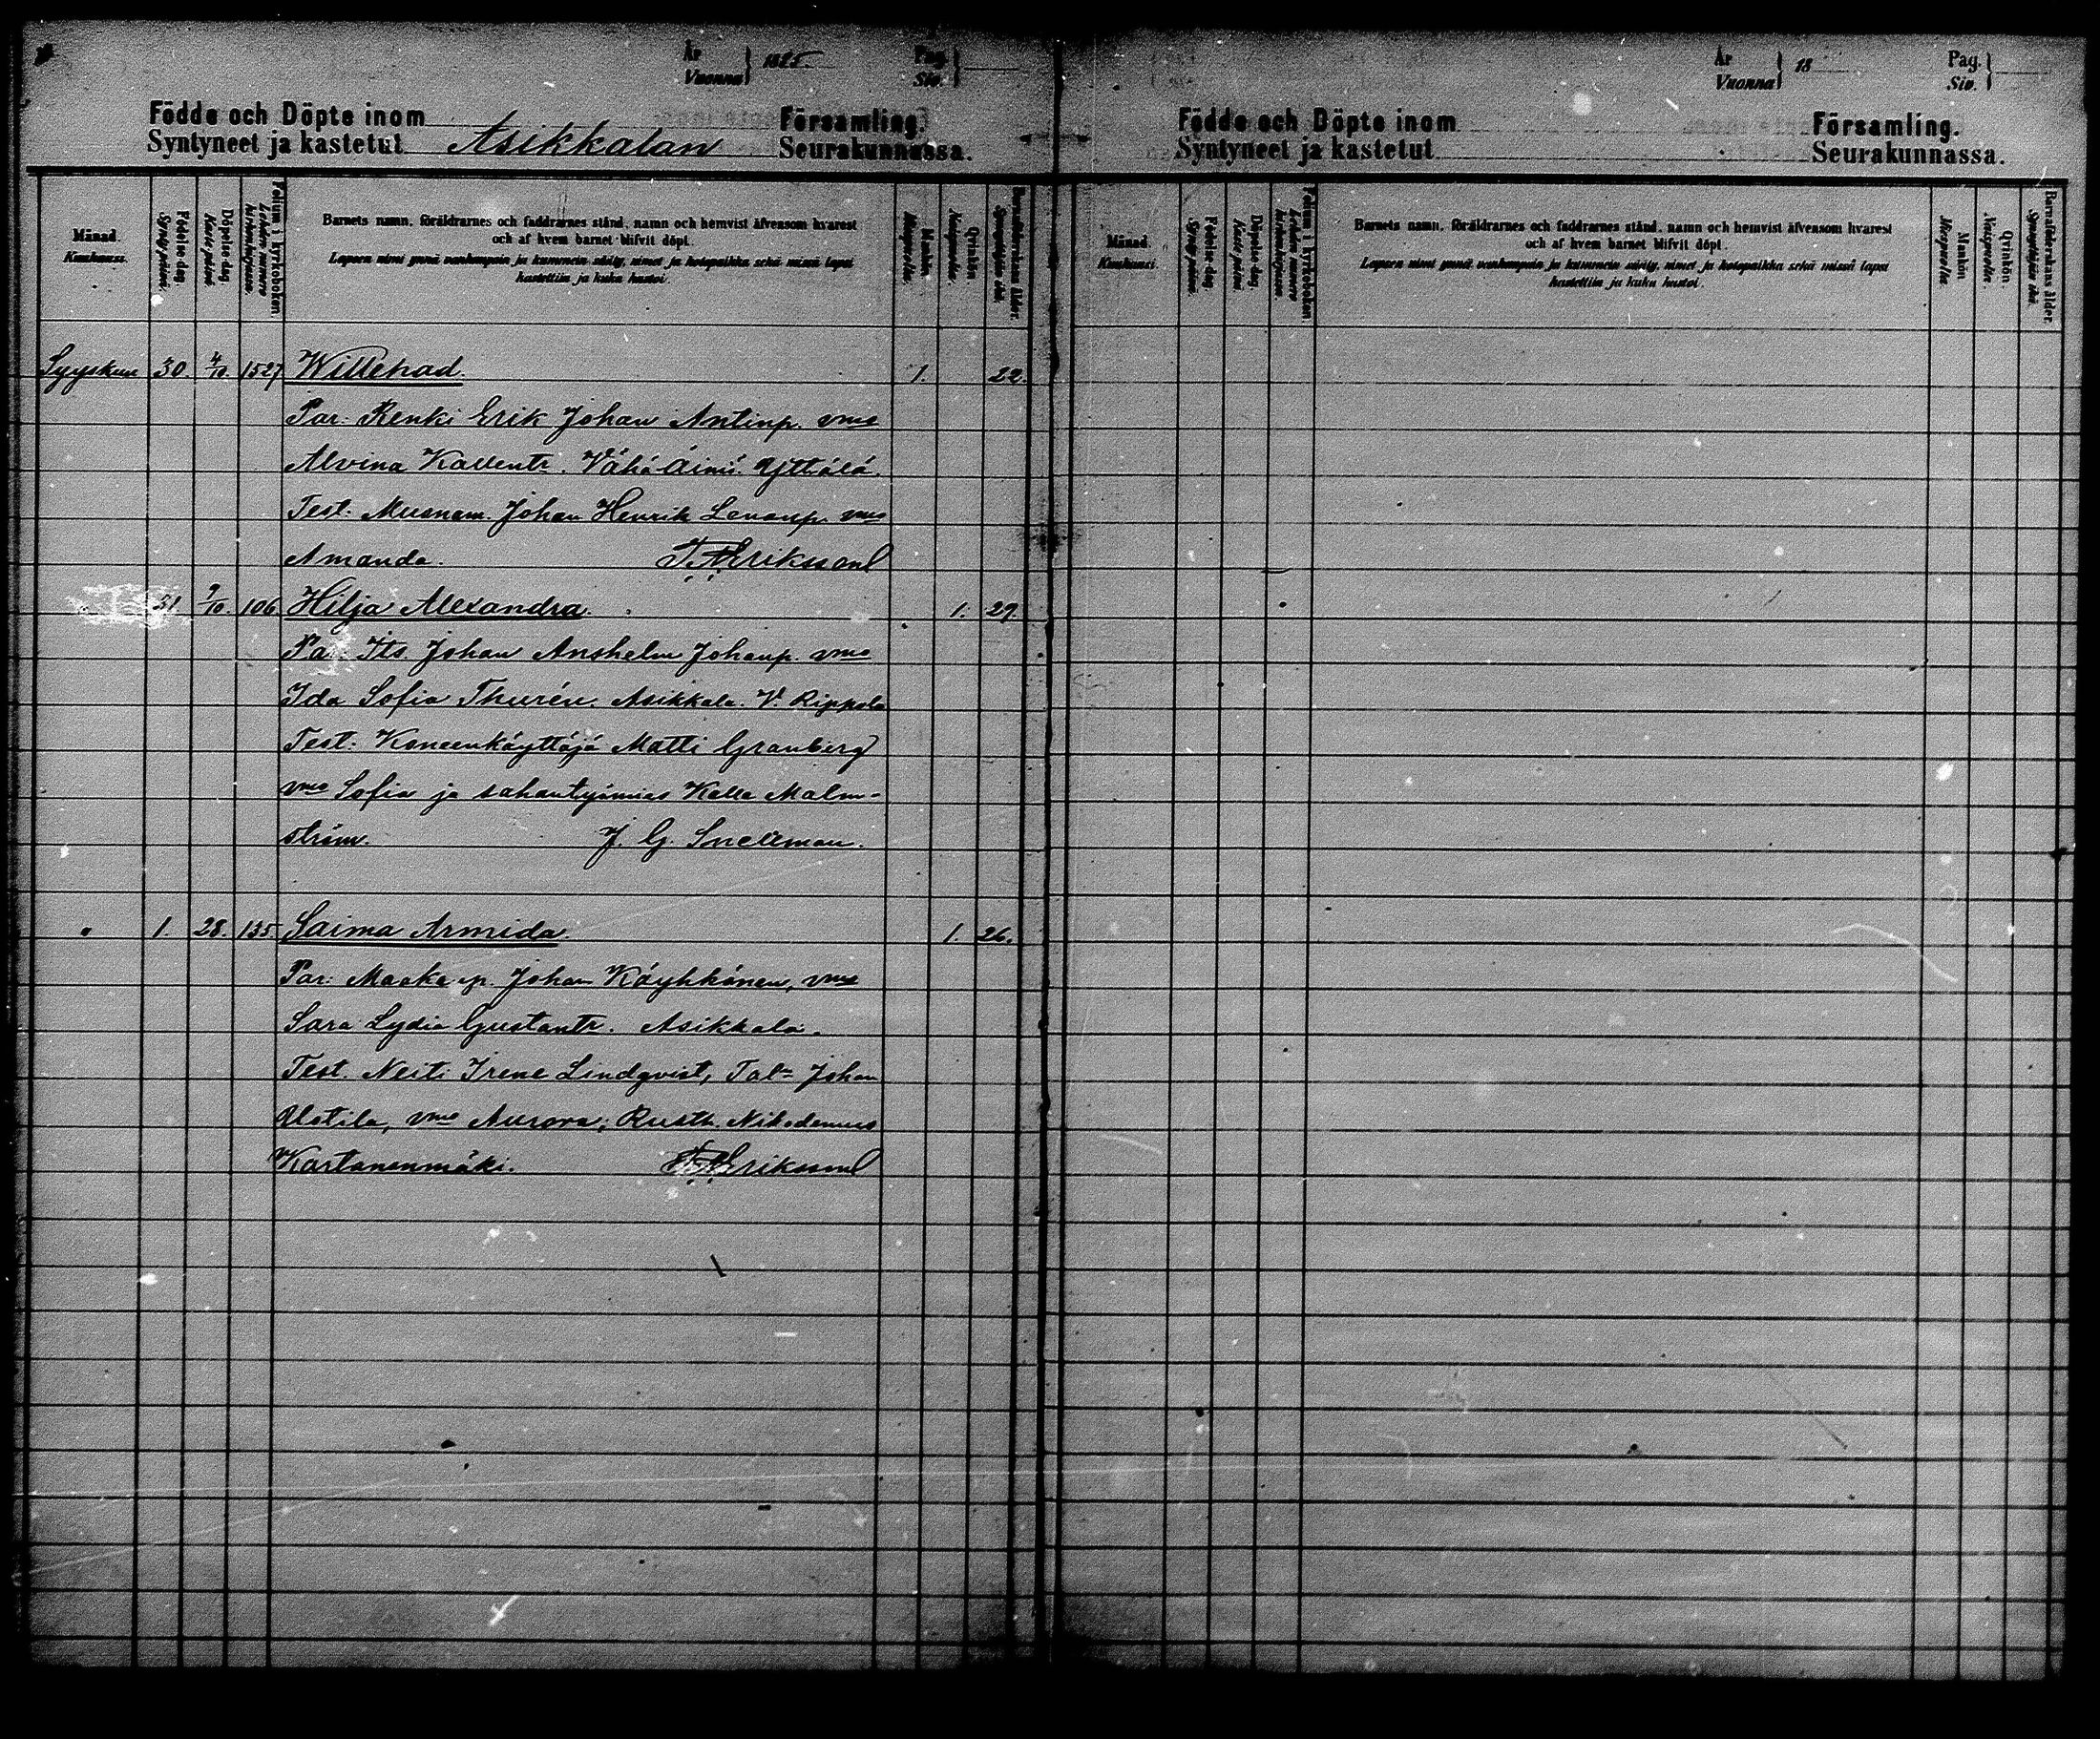 År
Vuonna } 1885.
Pag.
Siv. }
Födde och Döpte inom
Syntyneet ja kastetut Asikkalan
Församling.
Seurakunnassa.
Månad.
Kuukausi.
Födelse dag.
Syntyı päivä.
Döpelse dag.
Kaste päivä.
Folium i kyrkoboken.
Lehden numero
kirkonkirjassa.
Barnets namn, föräldrarnes och faddrarnes stånd, namn och hemvist äfvensom hvarest
och af hvem barnet blifvit döpt.
Lapsen nimi ynnä vanhempain ja kummein sääty, nimet ja kotopaikka sekä missä lapsi
kastettiin ja kuka kastoi.
Mankön
Miespuolia.
Qvinkön
Vaispuolia.
Barnaföderskans ålder.
Synnyttäjän ikä.
Syyskuu 30. 4/10. 1527 Willehad. 1. 22.
Par: Renki Erik Johan Antinp. vmo
Alvina Kallentr. Vähä Äiniö.
Test: Johan Henrik vmo
Amanda. Eriksson
31. 9/10. 106 Hilja Alexandra. 1. 29.
Its. Johan Anshelm Johanp. vmo
Ida Sofia Thurén. Asikkala. Rippola
Test: Koneenkäyttäjä Matti Granberg
vmo Sofia ja sahantyömies Kalle Malm-
ström. J. G. Snellman.
" 1. 28. 135 Saima Armida. 1. 26.
Par: Johan Käyhkönen, vmo
Sara Lydia Gustantr. Asikkala.
Test. Neiti Irene Lindqvist, Tal. Johan
Uotila, vmo Aurora, Rusth. Nikodemus
Kartanonmäki. Eriksson
År
Vuonna } 18
Pag.
Siv. }
Födde och Döpte inom
Syntyneet ja kastetut
Församling.
Seurakunnassa.
Månad.
Kuukausi.
Födelse dag.
Synty päivä.
Döpelse dag.
Kaste päivä.
Folium i kyrkoboken.
Lehden numero
kirkonkirjassa.
Barnets namn, föräldrarnes och faddrarnes stånd, namn och hemvist äfvensom hvarest
och af hvem barnet blifvit döpt.
Lapsen nimi ynnä vanhempain ja kummein sääty, nimet ja kotopaikka sekä missä lapsi
kastettiin ja kuka kastoi.
Mankön
Miespuolia.
Qvinkön
Vaispuolia.
Barnaföderskans ålder.
Synnyttäjän ikä.